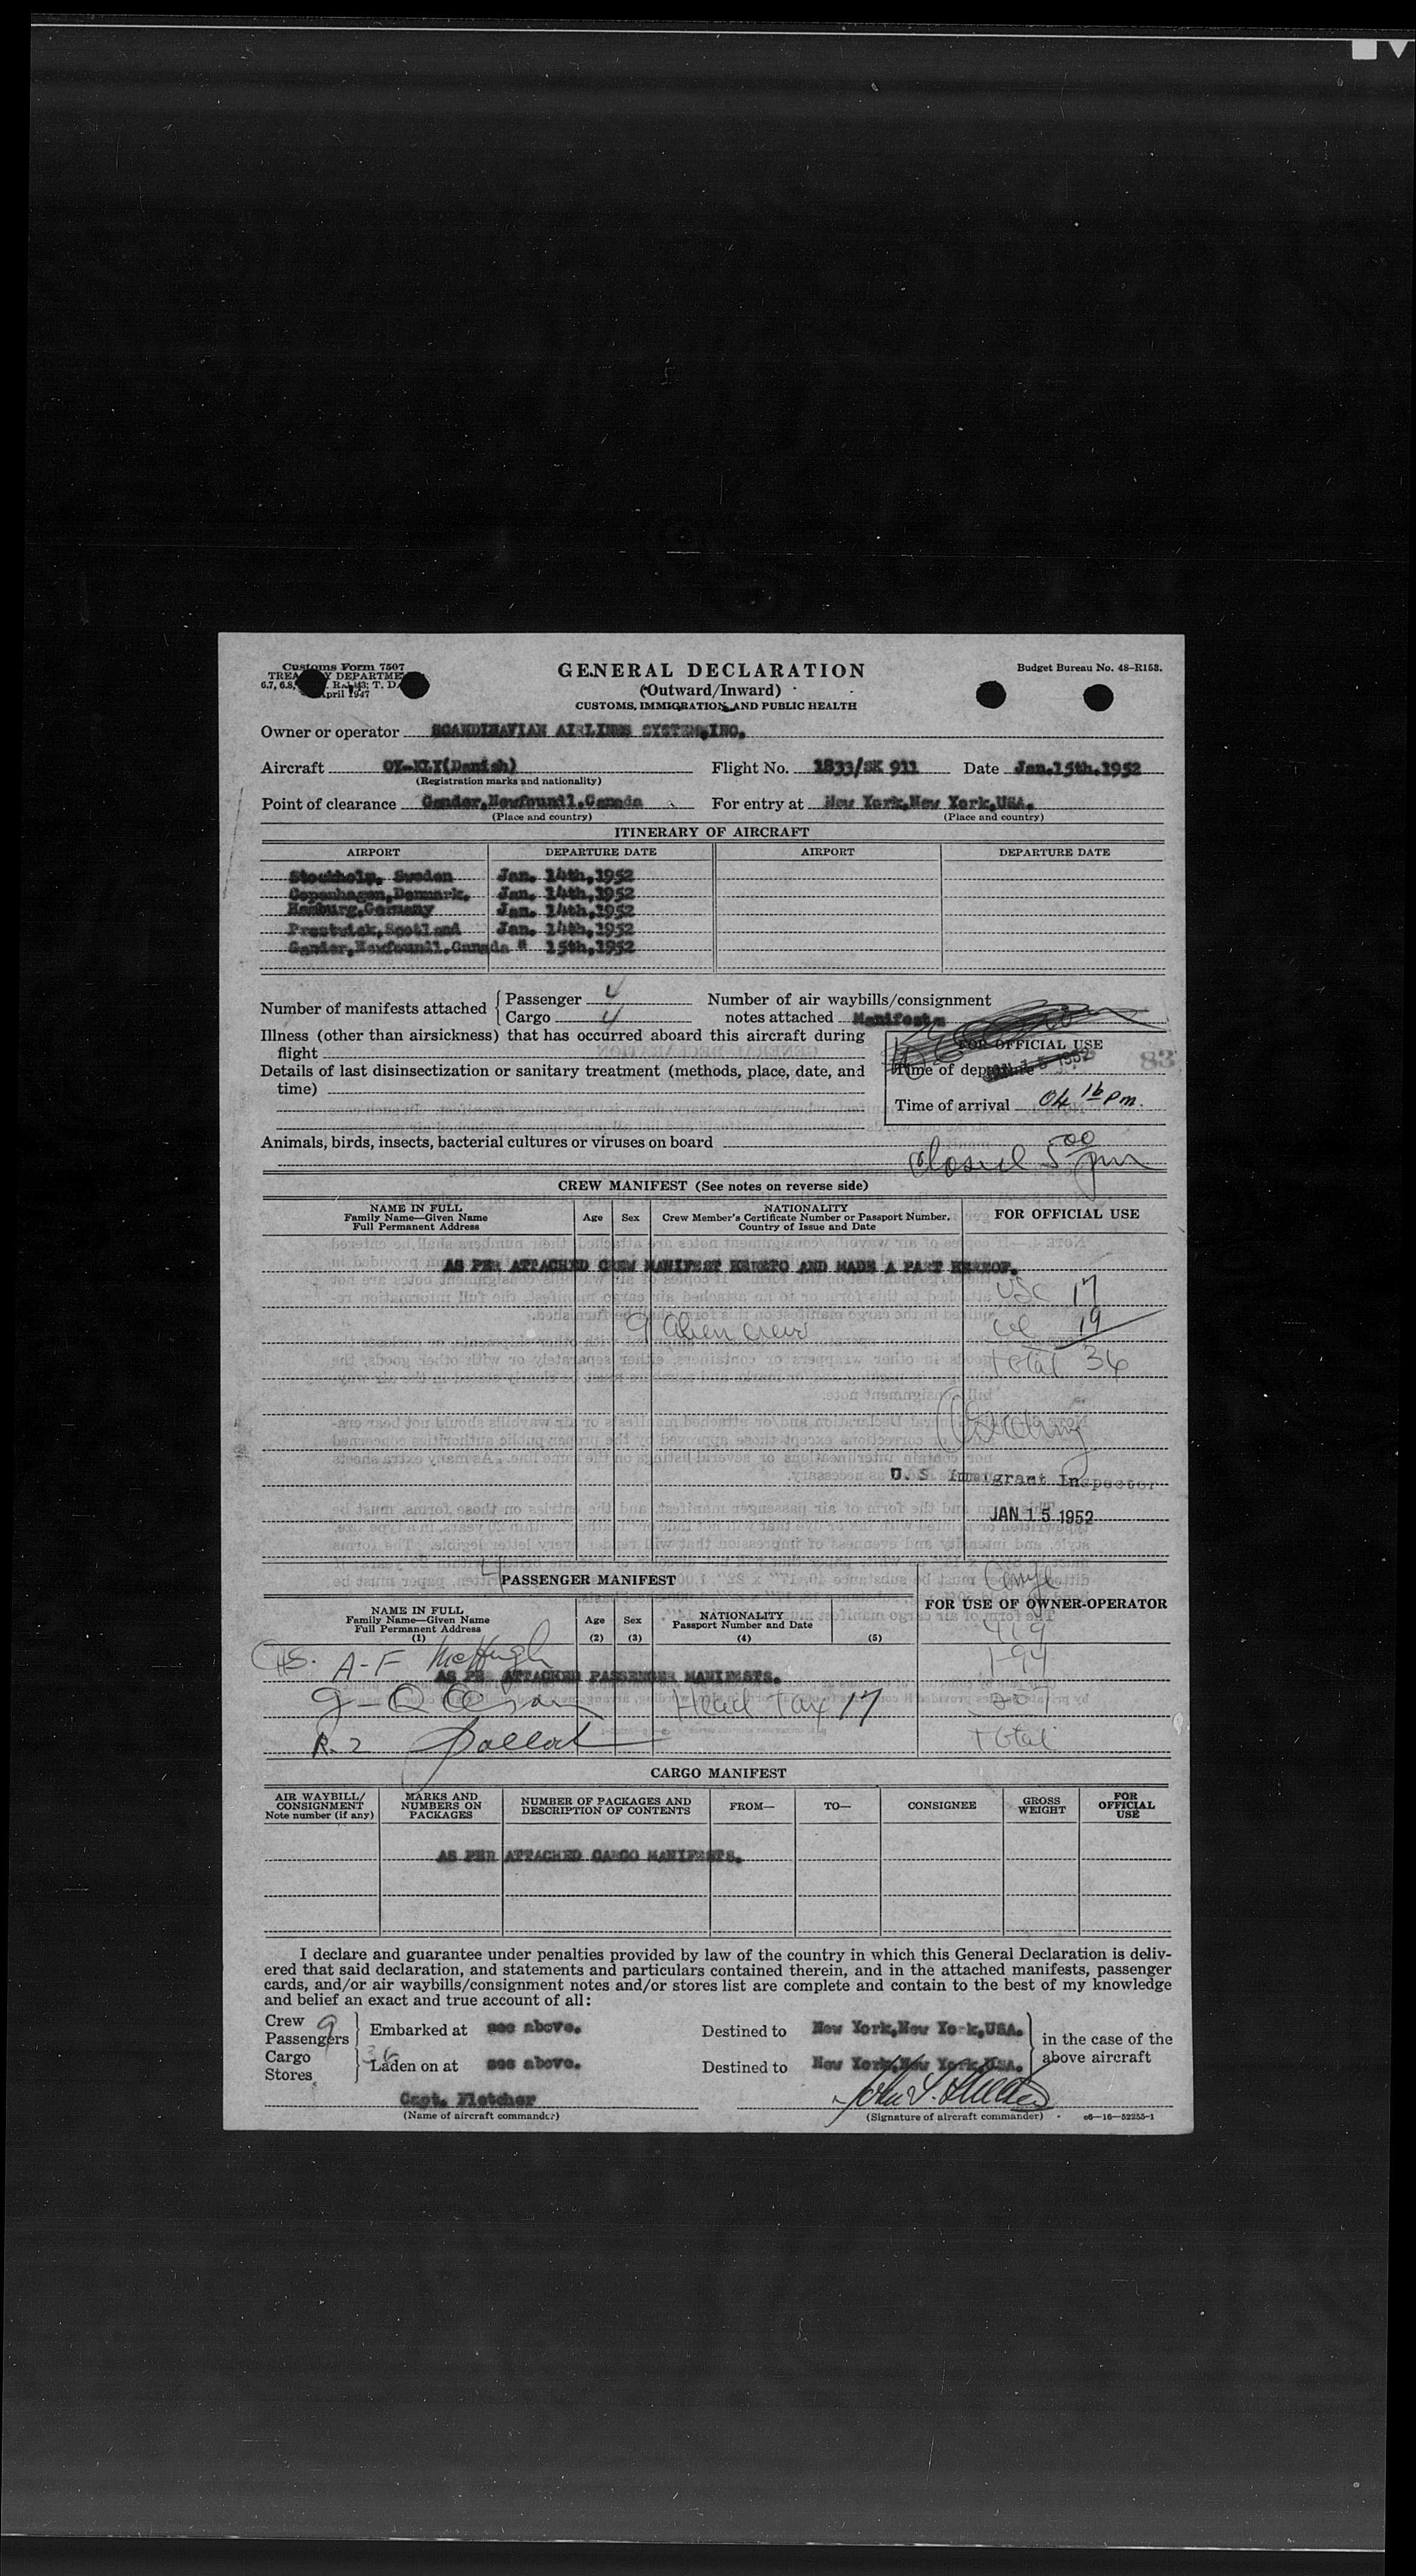 Customs Form 7507
TREA Y DEPARTME
6.7, 6.8, R. 143; T. D.
April 1947
GENERAL DECLARATION
(Outward/Inward)
CUSTOMS, IMMIGRATION, AND PUBLIC HEALTH
Budget Bureau No. 48-R153.
Owner or operator SCANDINAVIAN AIRLINES SYSTEM,INC.
Aircraft OY-KLY(Danish) Flight No. 1833/SK 911 Date Jan.15th.1952
(Registration marks and nationality)
Point of clearance Gander,Newfoundl.Canada For entry at New York,New York,USA.
(Place and country) (Place and country)
ITINERARY OF AIRCRAFT
AIRPORT DEPARTURE DATE AIRPORT DEPARTURE DATE
Stockholm, Sweden Jan. 14th,1952
Copenhagen,Denmark. Jan. 14th,1952
Hamburg,Germany Jan. 14th,1952
Prestwick,Scotland Jan. 14th,1952
Gander,Newfoundl.Canada " 15th,1952
Number of manifests attached Passenger 4 Number of air waybills/consignment
Cargo 4 notes attached Manifests
Illness (other than airsickness) that has occurred aboard this aircraft during
flight
FOR OFFICIAL USE
83
Details of last disinsectization or sanitary treatment (methods, place, date, and
time)
Time of departure 15 1952
Time of arrival 04 16 pm.
Animals, birds, insects, bacterial cultures or viruses on board
Closed 5 00 pm
CREW MANIFEST (See notes on reverse side)
NAME IN FULL
Family Name—Given Name
Full Permanent Address
Age Sex
NATIONALITY
Crew Member's Certificate Number or Passport Number,
Country of Issue and Date
FOR OFFICIAL USE
AS PER ATTACHED CREW MANIFEST HERETO AND MADE A PART HEREOF.
USC 17
9 Alien crew 19
Total 36
U. S. Immigrant Inspector
JAN 15 1952
4 PASSENGER MANIFEST
NAME IN FULL
Family Name—Given Name
Full Permanent Address
(1)
Age
(2)
Sex
(3)
NATIONALITY
Passport Number and Date
(4) (5)
FOR USE OF OWNER-OPERATOR
419
A-F McHugh
AS PER ATTACHED PASSENGER MANIFESTS.
1-94
Head Tax 17 207
R-2 Total
CARGO MANIFEST
AIR WAYBILL/
CONSIGNMENT
Note number (if any)
MARKS AND
NUMBERS ON
PACKAGES
NUMBER OF PACKAGES AND
DESCRIPTION OF CONTENTS
FROM— TO— CONSIGNEE
GROSS
WEIGHT
FOR
OFFICIAL
USE
AS PER ATTACHED CARGO MANIFESTS.
I declare and guarantee under penalties provided by law of the country in which this General Declaration is deliv-
ered that said declaration, and statements and particulars contained therein, and in the attached manifests, passenger
cards, and/or air waybills/consignment notes and/or stores list are complete and contain to the best of my knowledge
and belief an exact and true account of all:
Crew 9
Passengers Embarked at see above. Destined to New York,New York,USA. in the case of the
Cargo 36
Stores Laden on at see above. Destined to New York,New York,USA. above aircraft
Capt. Fletcher
(Name of aircraft commander) (Signature of aircraft commander) c6—16—52255-1